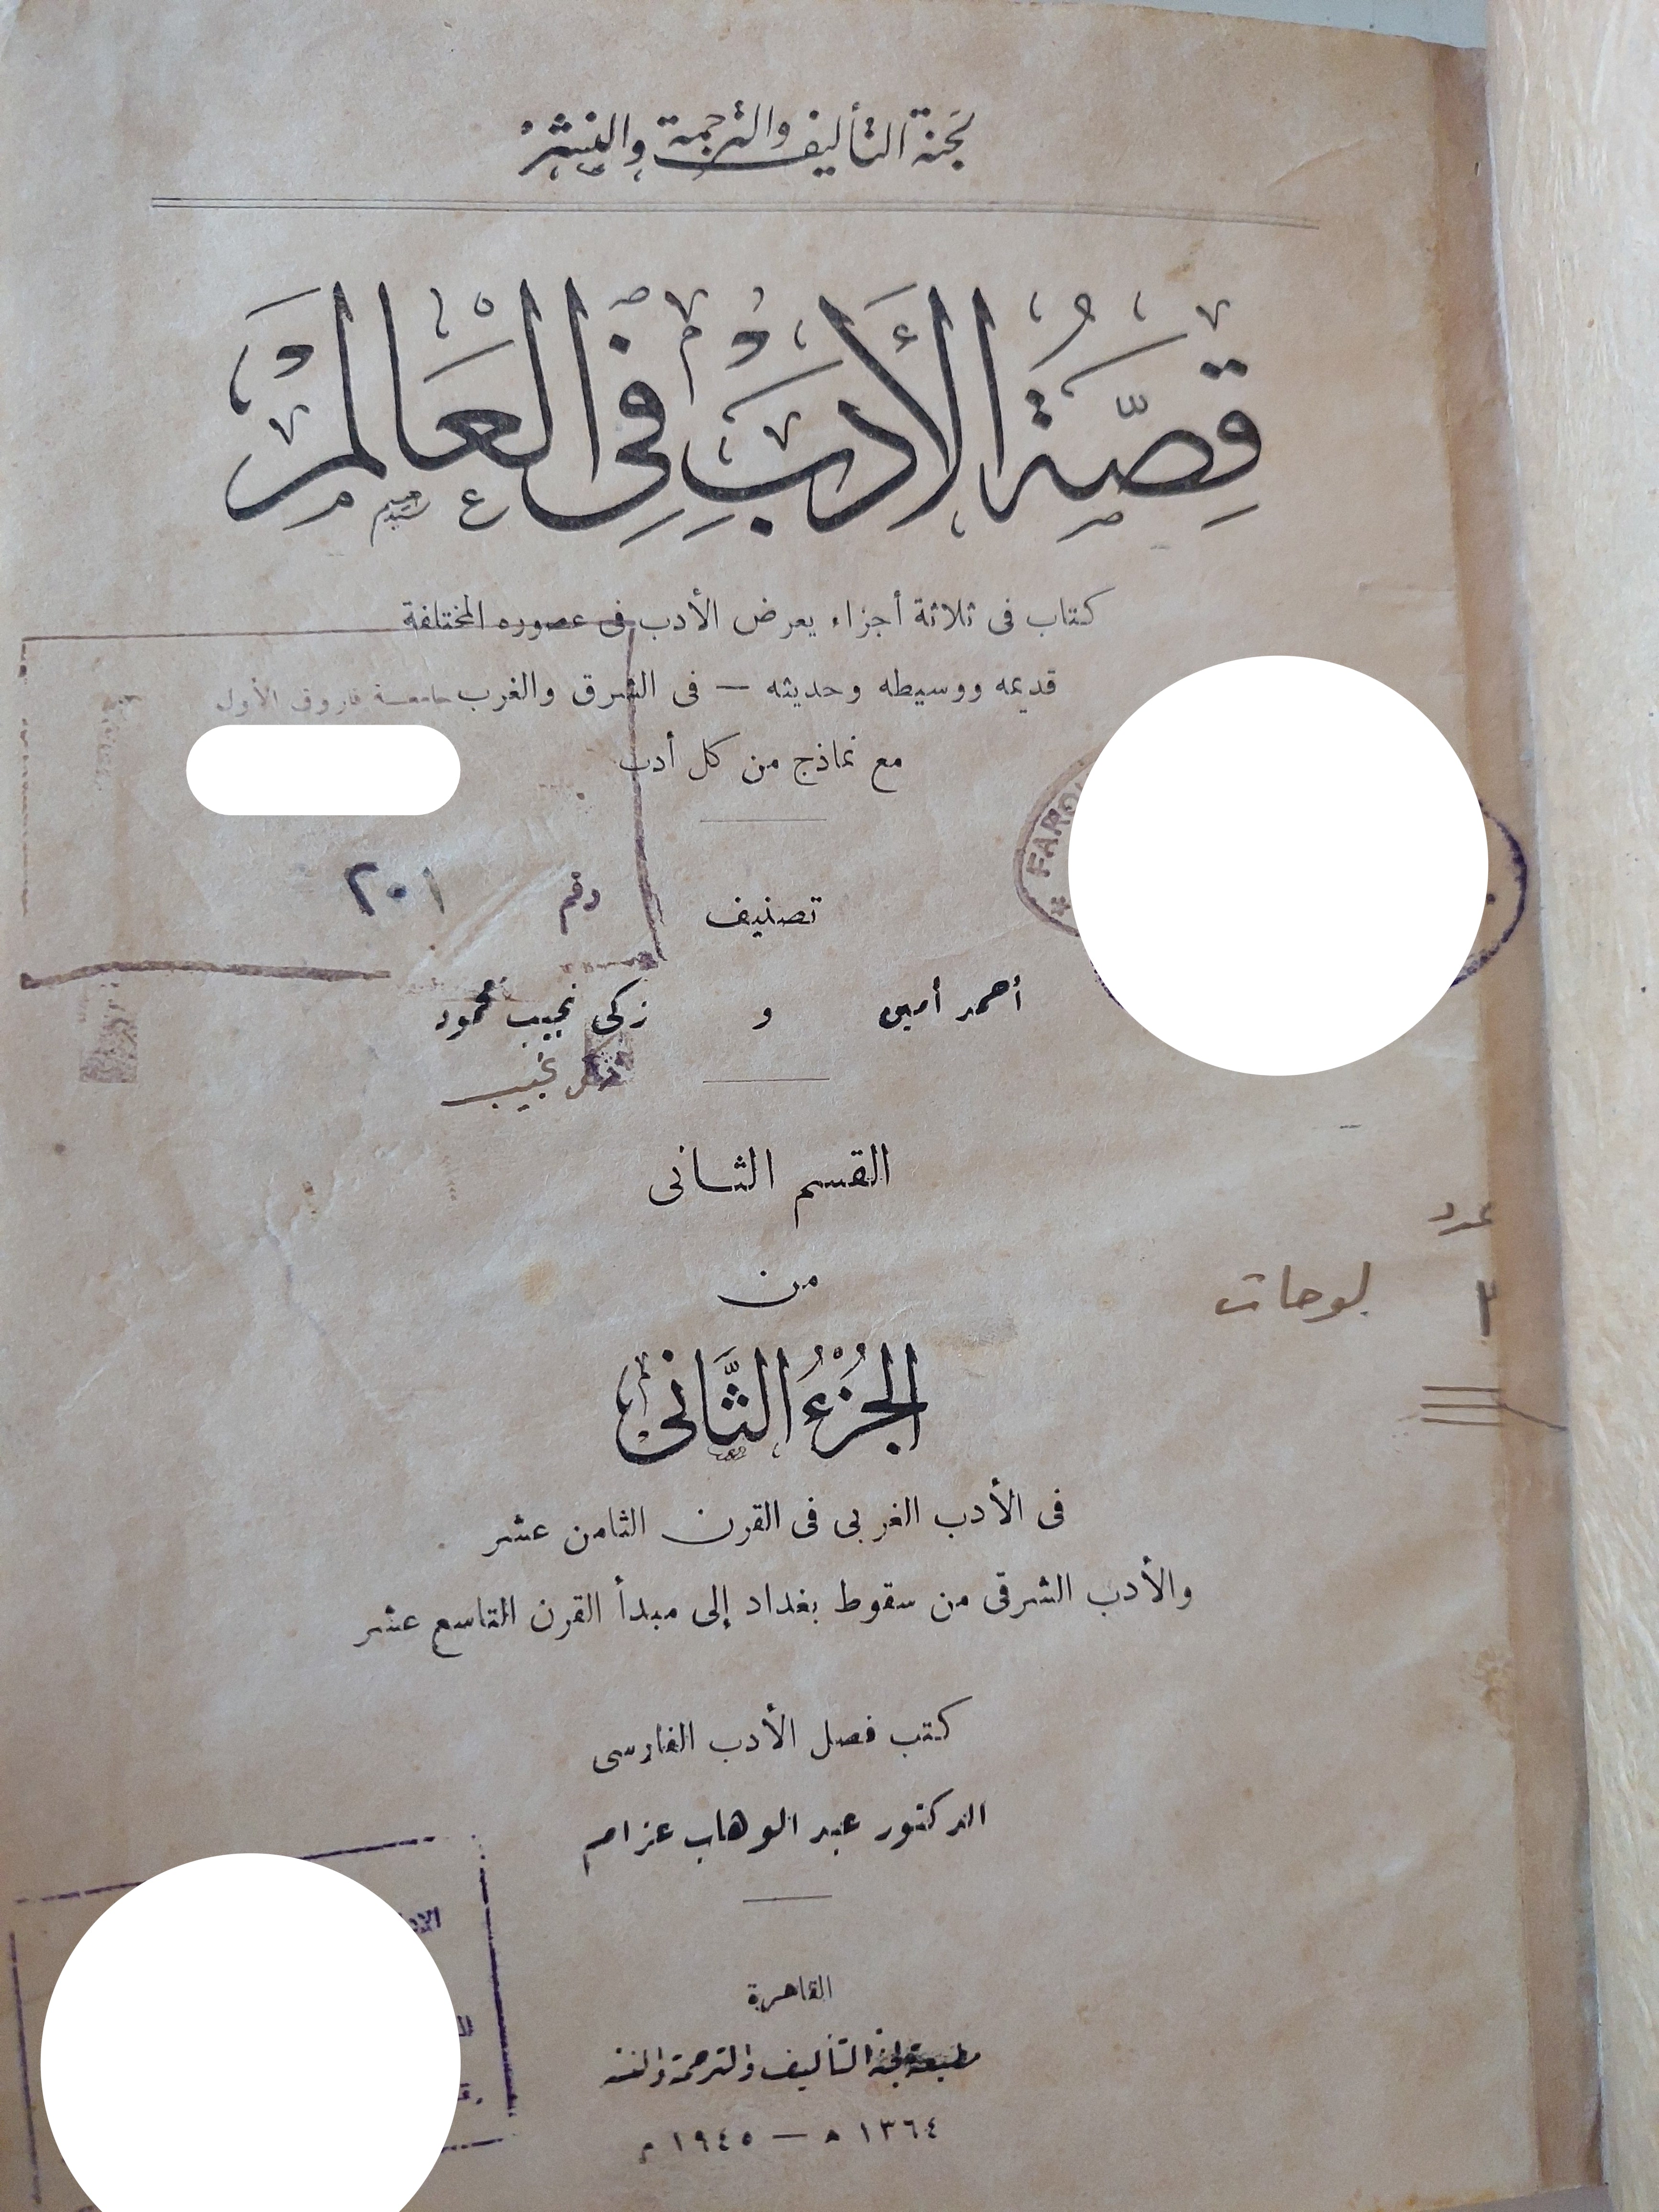 لجنة التأليف والترجمة والنشر
قِصَّةُ الأَدَبِ فِى العَالَمْ
كتاب فى ثلاثة أجزاء يعرض الأدب فى عصوره المختلفة
قديمه ووسيطه وحديثه — فى الشرق والغرب
جامعة فاروق الأول
مع نماذج من كل أدب
FAROU
رقم ٢٠١
تصنيف
أحمد أمين و زكى نجيب محمود
القسم الثانى
من
عدد
٣ لوحات
الجُزْءُ الثَّانى
فى الأدب الغربى فى القرن الثامن عشر
والأدب الشرقى من سقوط بغداد إلى مبدأ القرن التاسع عشر
كتب فصل الأدب الفارسى
الدكتور عبد الوهاب عزام
القاهرة
مطبعة لجنة التأليف والترجمة والنشر
١٣٦٤ ھ — ١٩٤٥ م